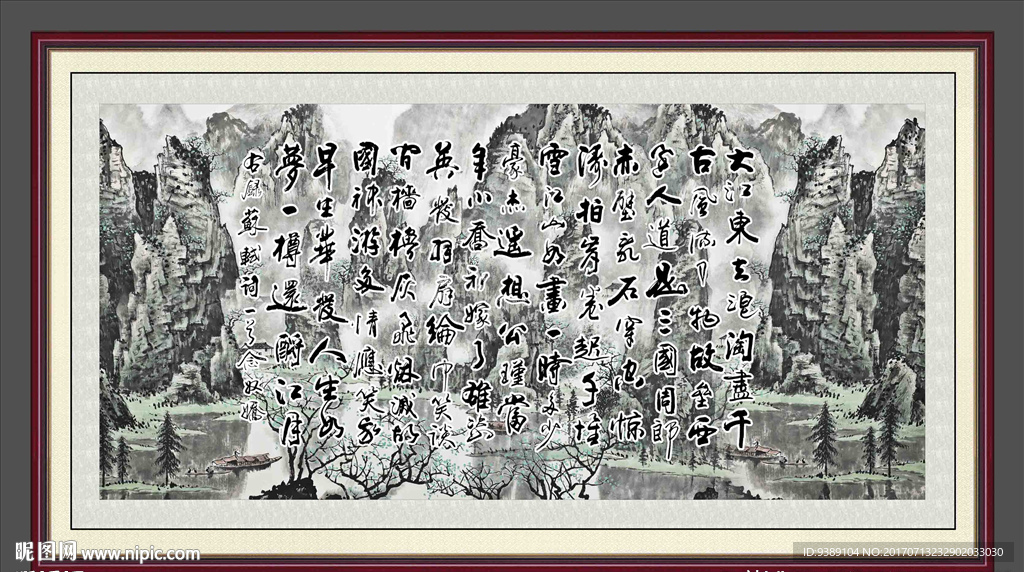 大江東去浪淘盡千
古風流人物故壘西
邊人道是三國周郎
赤壁亂石穿空惊
濤拍岸卷起千堆
雪江山如畫一時多少
豪杰遥想公瑾當
年小喬初嫁了雄姿
英發羽扇綸巾笑談
間檣櫓灰飛煙滅故
國神游多情應笑我
早生華發人生如
夢一樽還酹江月
蘇軾詞一首念奴嬌
昵图网 www.nipic.com
ID:9389104 NO:20170713232902033030